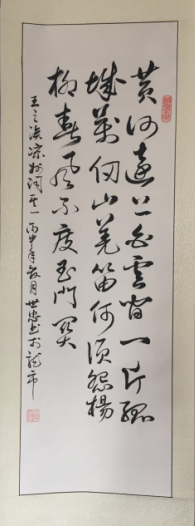 黄河远上白云间一片孤
城万仞山羌笛何须怨杨
柳春风不度玉门关
王之涣凉州词其一丙申年岁月世忠书於龙市